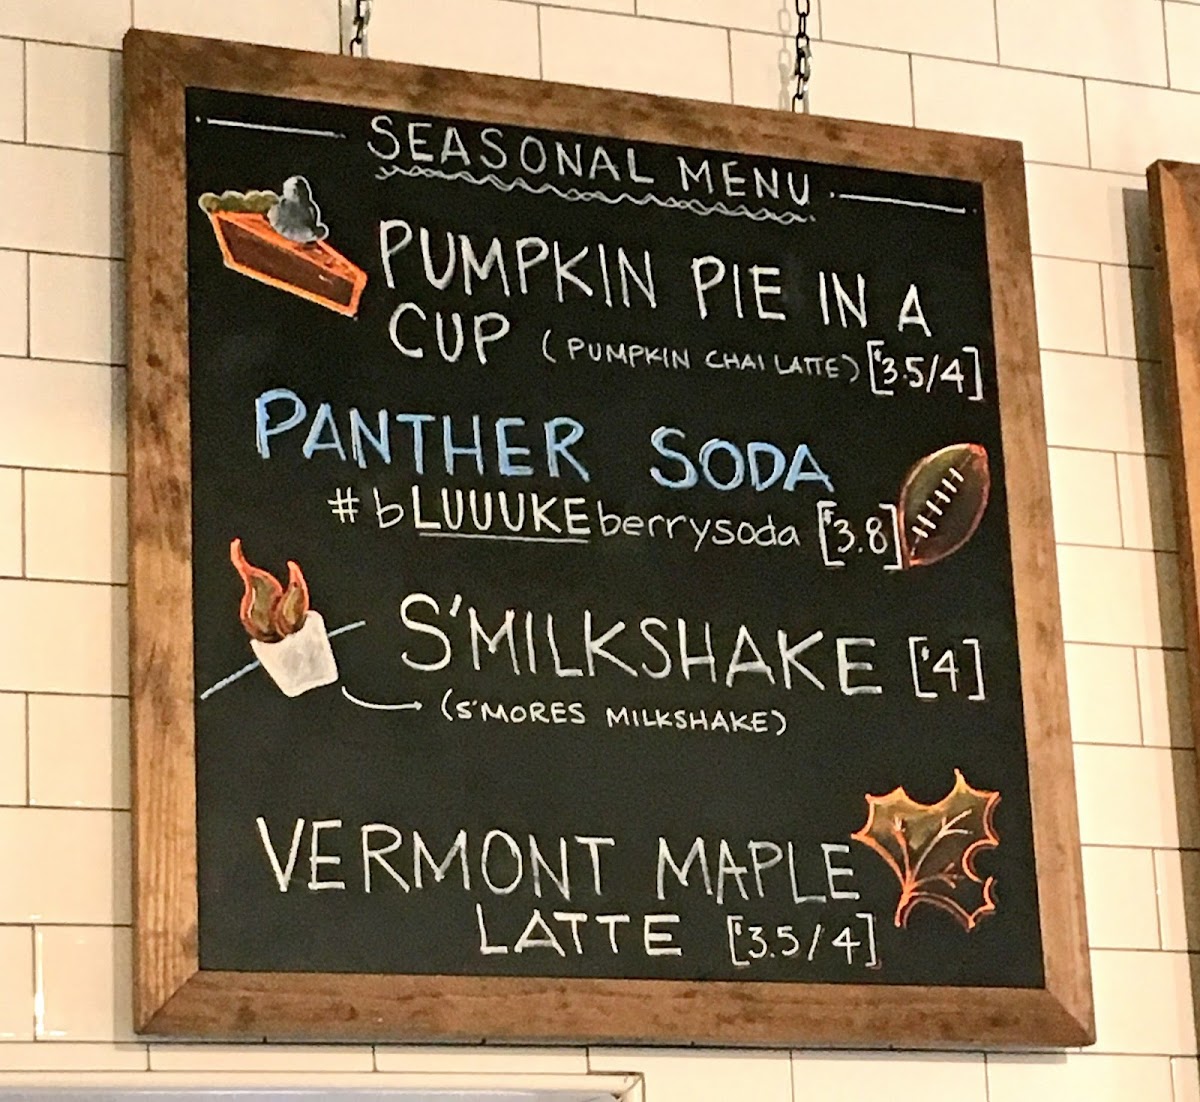 SEASONAL MENU
PUMPKIN PIE IN A
CUP (PUMPKIN CHAI LATTE) [$3.5/4]
PANTHER SODA
#bLUUUKEberrysoda [$3.8]
S'MILKSHAKE [$4]
(S'MORES MILKSHAKE)
VERMONT MAPLE
LATTE [$3.5/4]